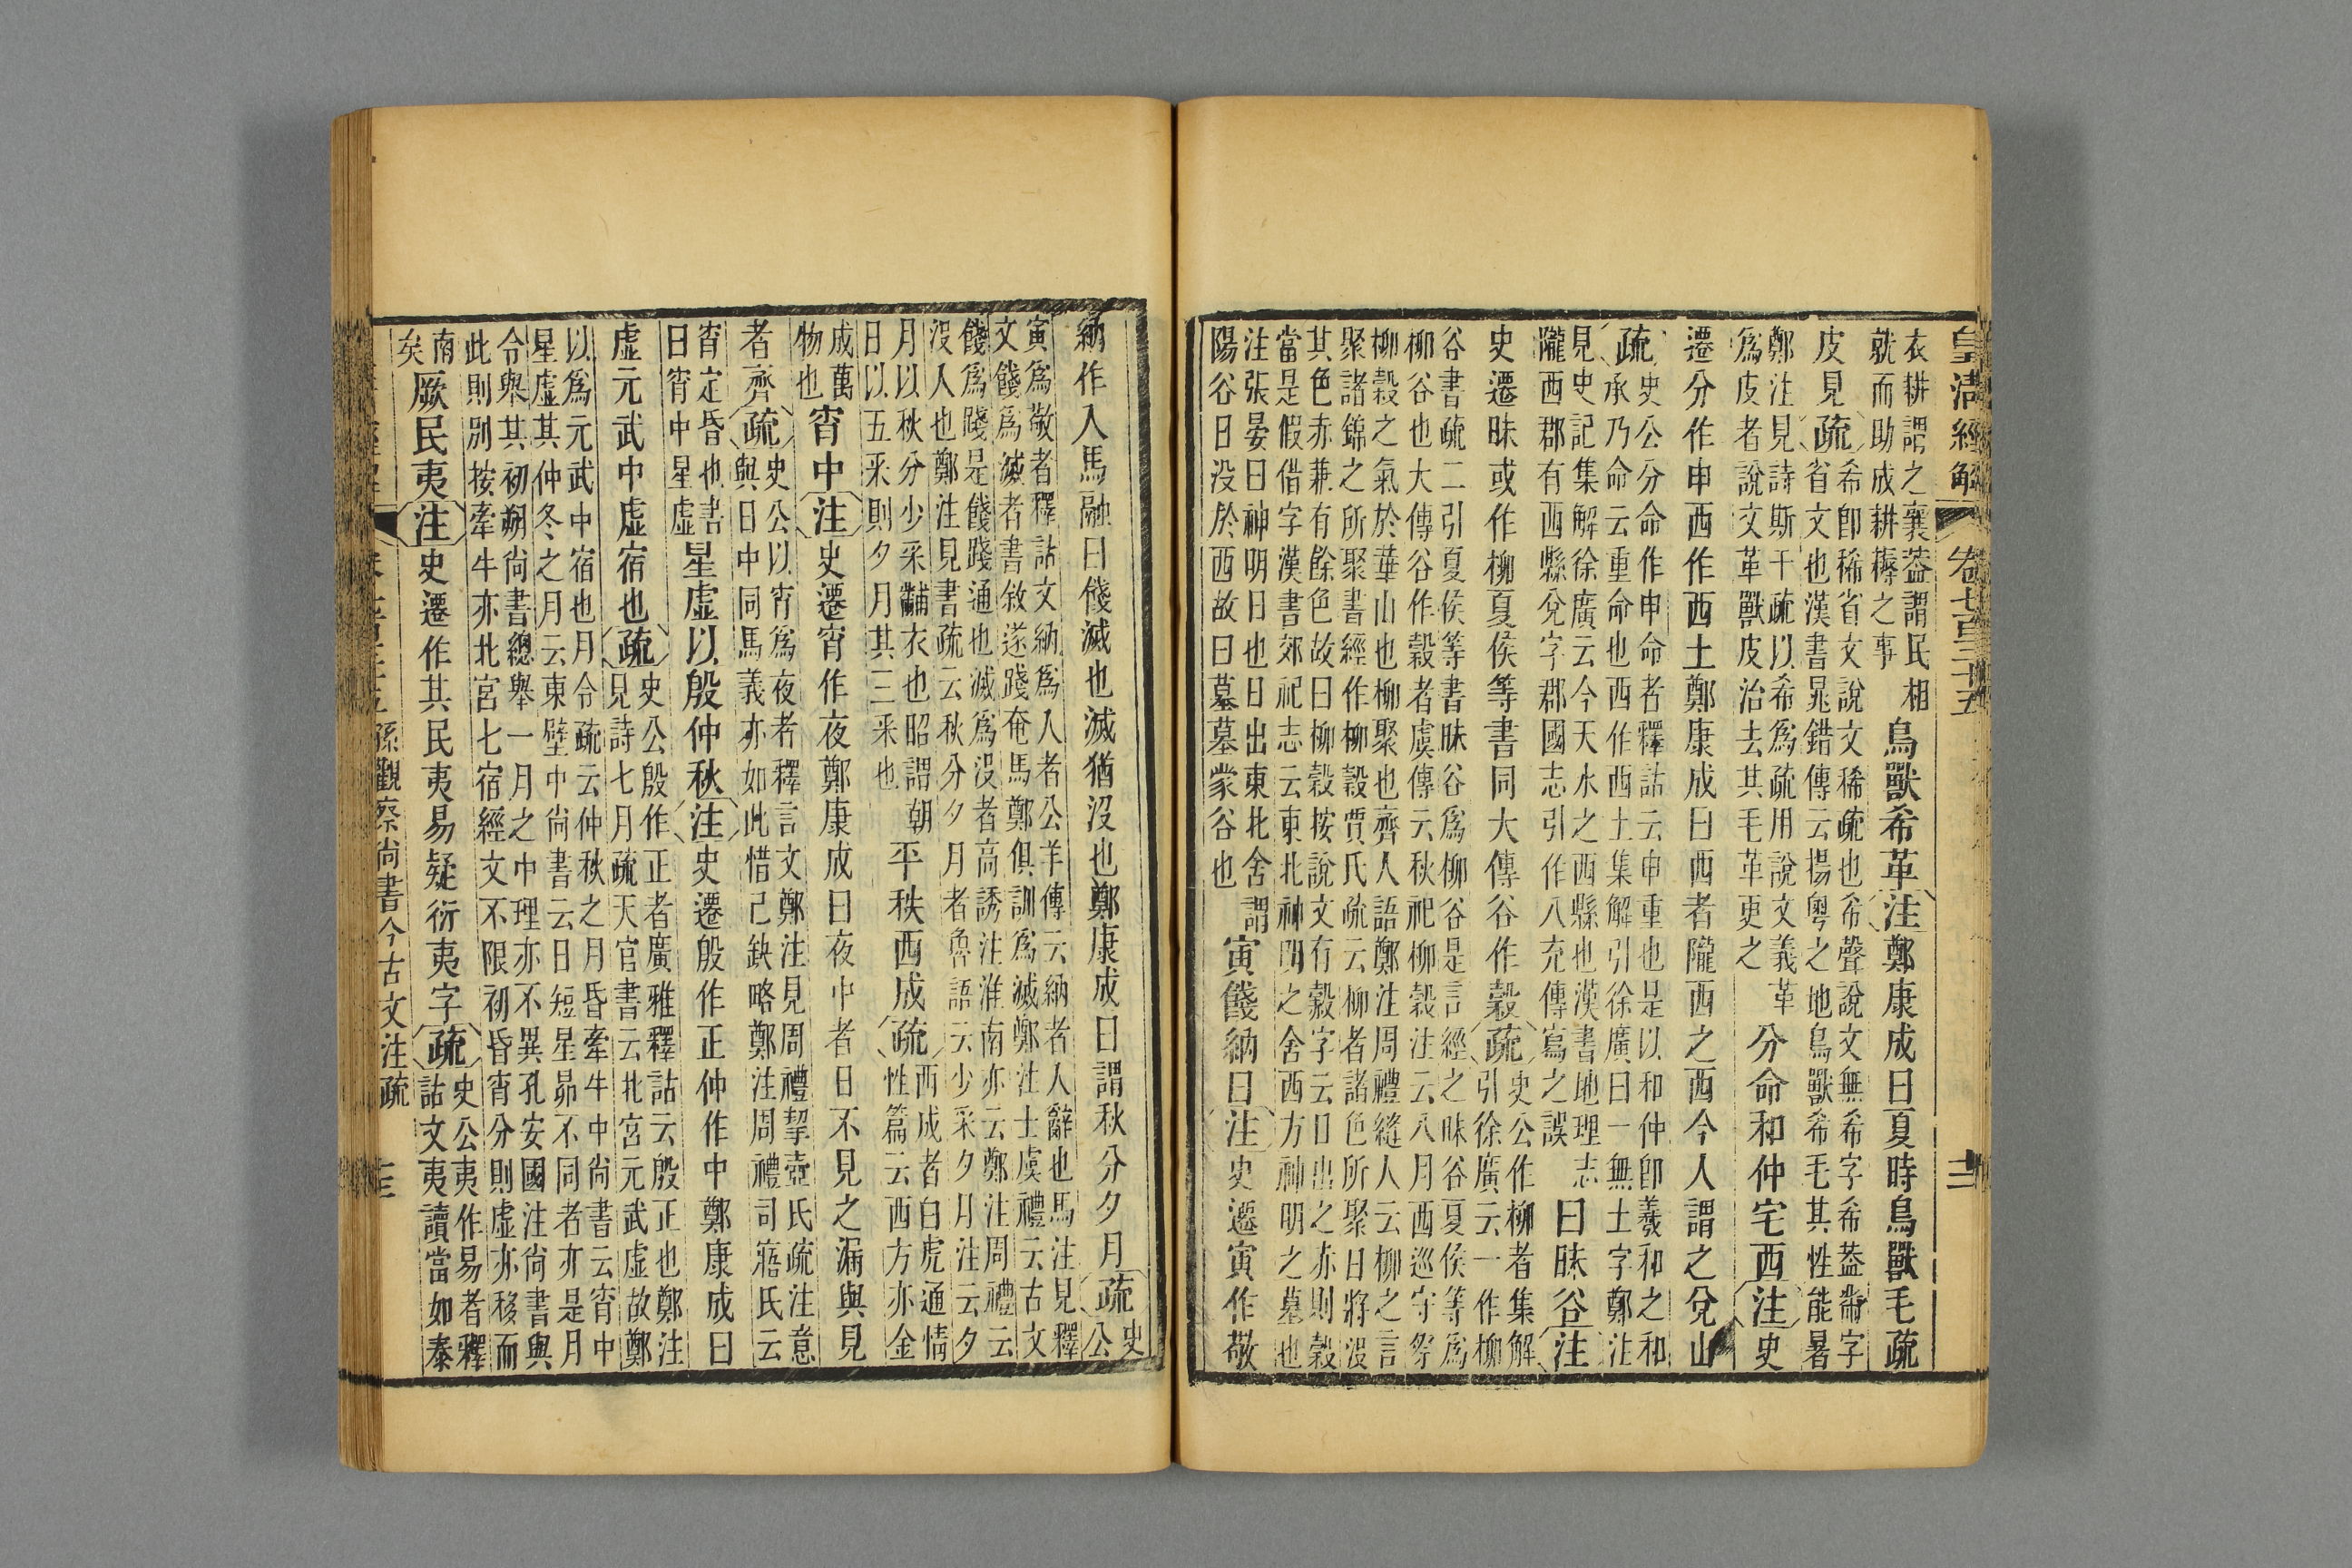 皇清經解 卷七百三十五
衣耕謂之襄葢謂民相
就而助成耕耨之事
鳥獸希革注鄭康成曰夏時鳥獸毛疏
皮見疏
希卽稀省文說文稀疏也希聲說文無希字希葢黹字
省文也漢書晁錯傳云揚粤之地鳥獸希毛其性能暑
鄭注見詩斯干疏以希爲疏用說文義革
爲皮者說文革獸皮治去其毛革更之
分命和仲宅西注史
遷分作申西作西土鄭康成曰西者隴西之西今人謂之兌山
疏
史公分命作申命者釋詁云申重也是以和仲卽羲和之和
承乃命云重命也西作西土集解引徐廣曰一無土字鄭注
見史記集解徐廣云今天水之西縣也漢書地理志
隴西郡有西縣兌字郡國志引作八充傳寫之誤
曰昧谷注
史遷昧或作柳夏侯等書同大傳谷作穀疏
史公作柳者集解
引徐廣云一作柳
谷書疏二引夏侯等書昧谷爲柳谷是言經之昧谷夏侯等爲
柳谷也大傳谷作穀者虞傳云秋祀柳穀注云八月西巡守祭
柳穀之氣於華山也柳聚也齊人語鄭注周禮縫人云柳之言
聚諸錦之所聚書經作柳穀賈氏疏云柳者諸色所聚日將沒
其色赤兼有餘色故曰柳穀按說文有穀字云日出之赤則穀
當是假借字漢書郊祀志云東北神明之舍西方神明之墓也
注張晏曰神明日也日出東北舍謂
陽谷日没於西故曰墓墓蒙谷也
寅餞納日注史遷寅作敬
納作入馬融曰餞滅也滅猶沒也鄭康成曰謂秋分夕月疏
史
公
寅爲敬者釋詁文納爲人者公羊傳云納者人辭也馬注見釋
文餞爲滅者書敘遂踐奄馬鄭俱訓爲滅鄭注士虞禮云古文
餞爲踐是餞踐通也滅爲沒者高誘注淮南亦云鄭注周禮云
沒人也鄭注見書疏云秋分夕月者魯語云少采夕月注云夕
月以秋分少采黼衣也昭謂朝
日以五采則夕月其三采也
平秩西成疏
西成者白虎通情
性篇云西方亦金
成萬
物也
宵中注史遷宵作夜鄭康成曰夜中者日不見之漏與見
者齊疏
史公以宵爲夜者釋言文鄭注見周禮挈壺氏疏注意
與日中同馬義亦如此惜己缺略鄭注周禮司寤氏云
宵定昏也書
日宵中星虛
星虛以殷仲秋注史遷殷作正仲作中鄭康成曰
虛元武中虛宿也疏
史公殷作正者廣雅釋詁云殷正也鄭注
見詩七月疏天官書云北宮元武虛故鄭
以爲元武中宿也月令疏云仲秋之月昏牽牛中尚書云宵中
星虛其仲冬之月云東壁中尚書云日短星昴不同者亦是月
令舉其初朔尚書總舉一月之中理亦不異孔安國注尚書與
此則別按牽牛亦北宮七宿經文不限初昏宵分則虛亦移而
南
矣
厥民夷注史遷作其民夷易疑衍夷字疏
史公夷作易者釋
詁文夷讀當如泰
孫觀察尚書今古文注疏